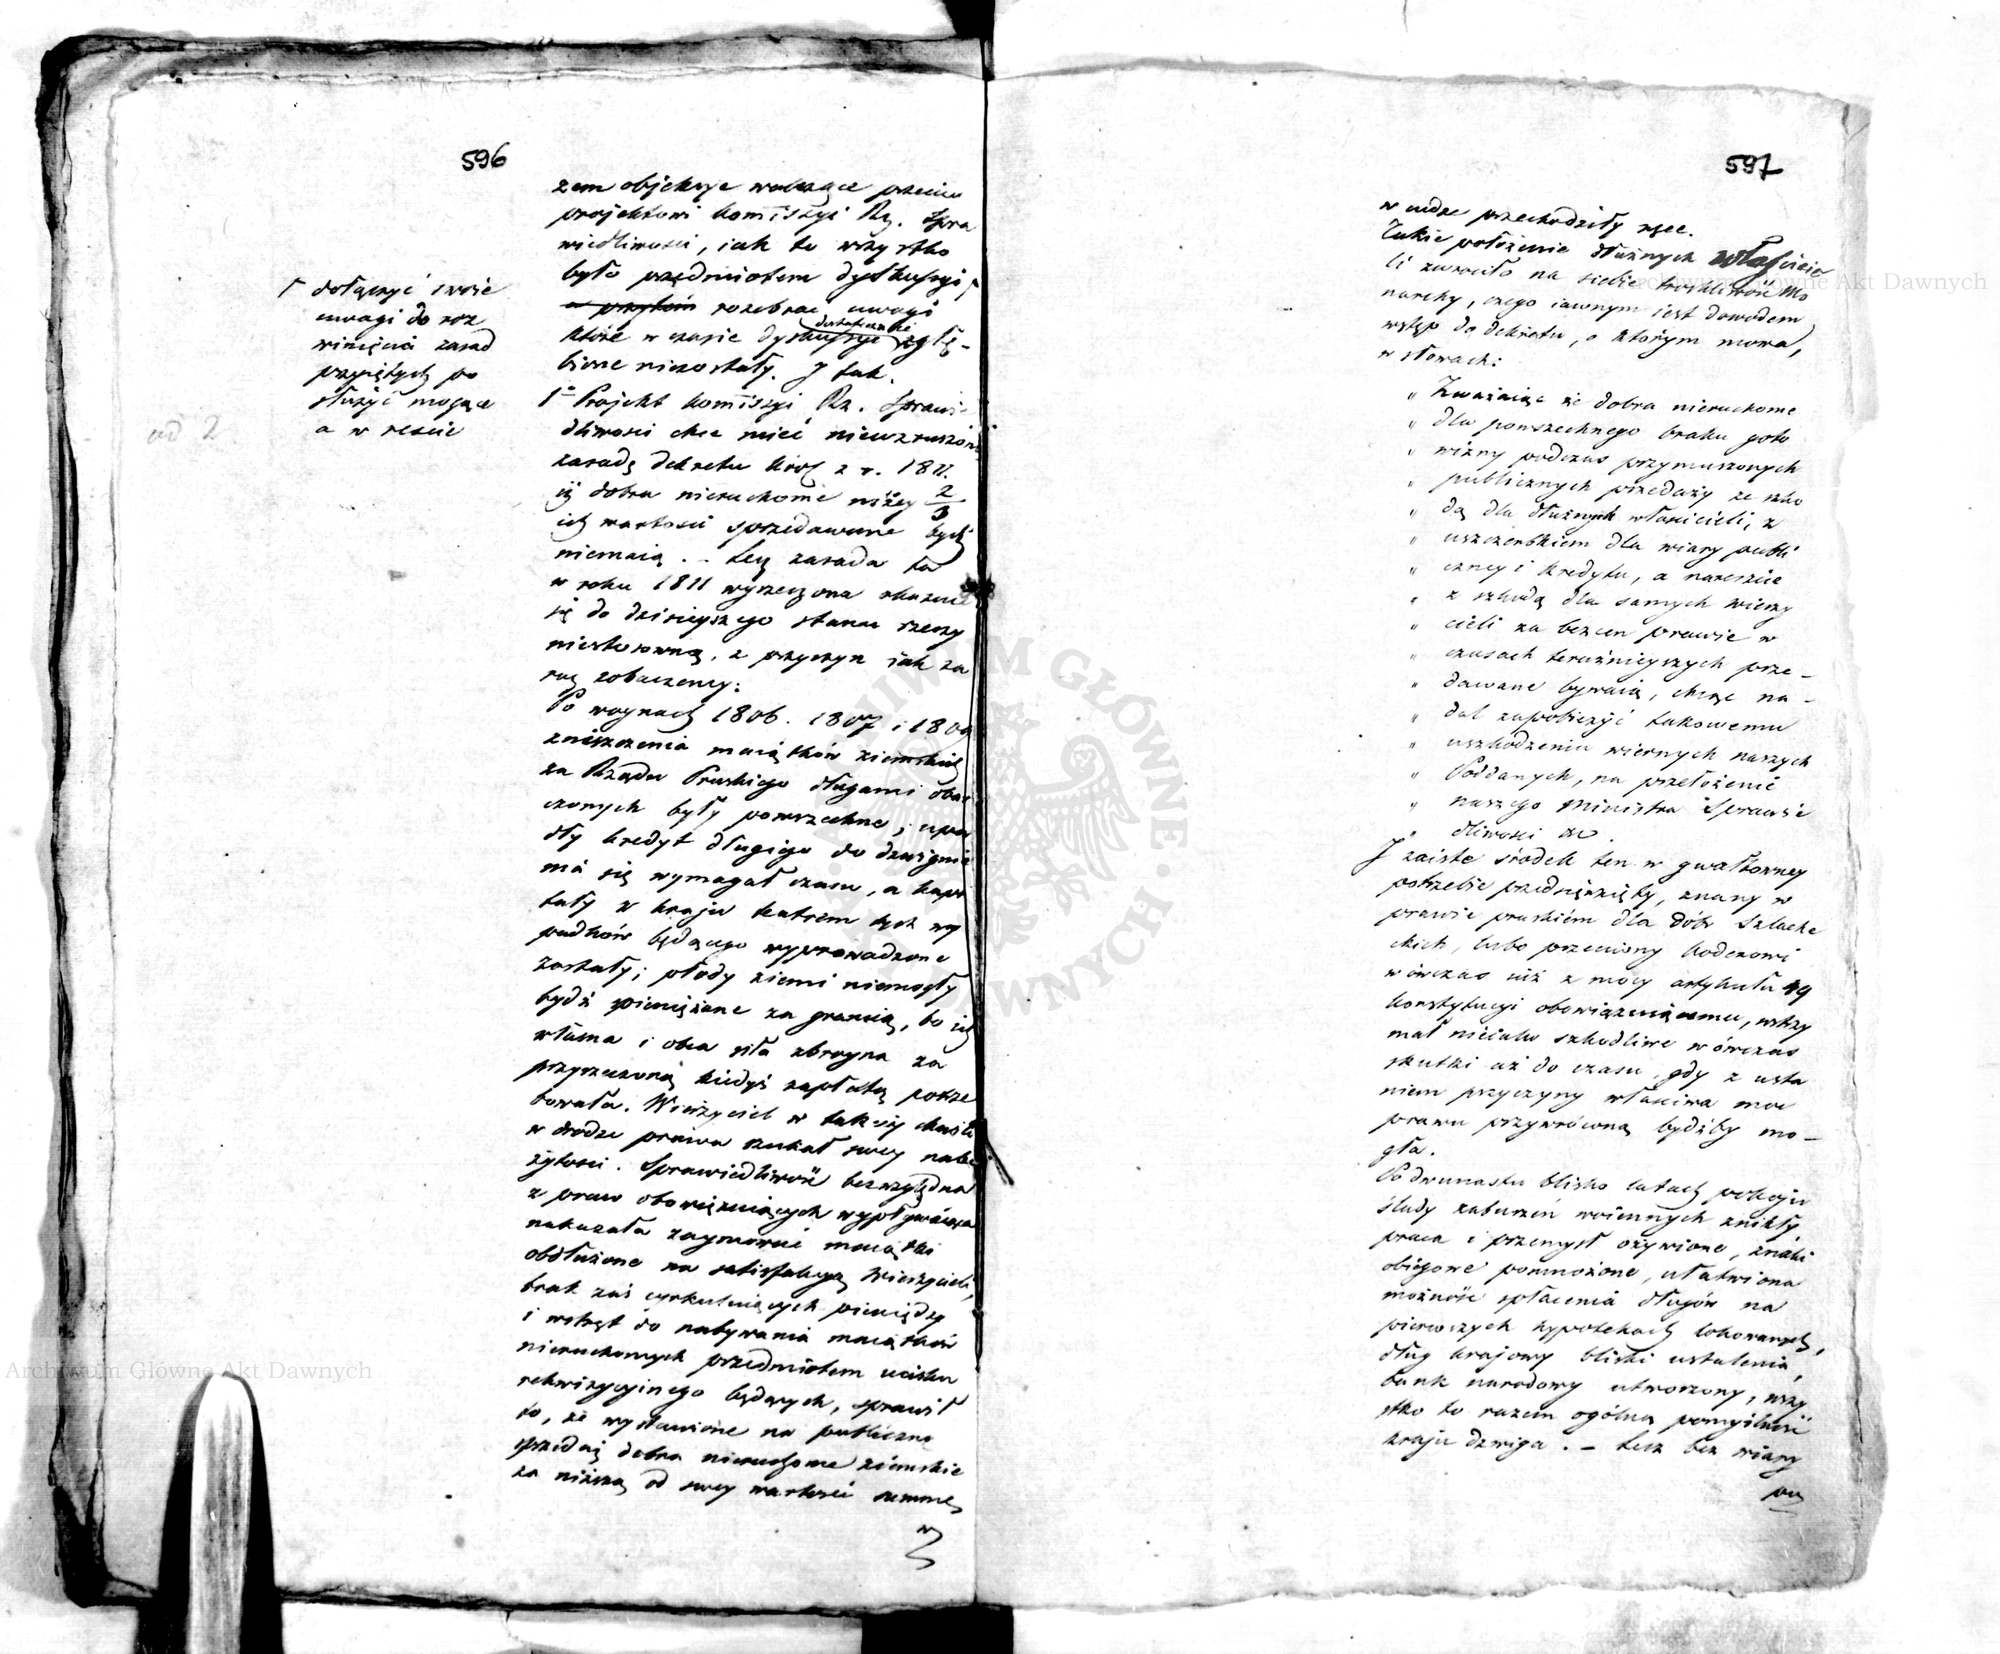 596
zem objekcye walczące przeciw
projektowi Kommissyi Rz. Spra
wiedliwości, iak to wszystko
było przedmiotem dyskussyi
a przytém rozebrać uwagi
dostatecznie
które w czasie dyskussyi zgłę-
bione niezostały. I tak.
1º Projekt Kommissyi Rz. Sprawie
dliwości chce mieć niewzruszoną
zasadę dekretu Król z r. 1811.
iż dobra nieruchome niżey 2/3
ich wartości sprzedawane bydź
niemaią. - Lecz zasada ta
w roku 1811 wyrzeczona okazuie
się do dzisieyszego stanu rzeczy
niestosowną, z przyczyn iak za
raz zobaczemy:
Po woynach 1806. 1807 i 1809
zniszczenia maiątków ziemskich
za Rządu Pruskiego długami obar
czonych były powszechne; upa
dły kredyt długiego do dzwignie
nia się wymagał czasu, a kapi
tały z kraju teatrem tych wy
padków będącego wyprowadzone
zostały; płody ziemi niemogły
bydź pieniężone za granicą, bo ich
własna i obca siła zbroyna za
przyrzeczoną kiedyś zapłatą potrze
bowała. Wierzyciel w takiey chwili
w drodze prawa szukał swey nale
żytości. Sprawiedliwość bezwzględna
z praw obowiązuiących wypływaiąca
nakazała zaymować maiątki
obdłużone na satisfakcyą Wierzycieli,
brak zaś cyrkuluiących pieniędzy
i wstręt do nabywania maiątków
nieruchomych przedmiotem ucisku
rekwizycyinego będących, sprawił
to, że wystawione na publiczną
sprzedaż dobra nieruchome ziemskie
za niższą od swey wartości summę
w
dołączyć swoie
uwagi do roz
winięcia zasad
przyiętych po
służyć mogące
a w reście
ad 2
597
w cudze przechodziły ręce.
Takie położenie dłużnych właścicie
li zwróciło na siebie troskliwość Mo
narchy, czego iawnym iest dowodem
wstęp do dekretu, o którym mowa,
w słowach:
„ Zważaiąc że dobra nieruchome
„ dla powszechnego braku goto
„ wizny podczas przymuszonych
„ publicznych przedaży ze szko
„ dą dla dłużnych właścicieli, z
„ uszczerbkiem dla wiary publi
„ czney i kredytu, a nareszcie
„ z szkodą dla samych wierzy
„ cieli za bezcen prawie w
„ czasach teraźnieyszych prze-
„ dawane bywaią, chcąc na-
„ dal zapobieżyć takowemu
„ uszkodzeniu wiernych naszych
„ Poddanych, na przełożenie
„ naszego Ministra Sprawie
„ dliwości &c.
I zaiste środek ten w gwałtowney
potrzebie przedsięwzięty, znany w
prawie pruskiém dla dóbr Szlache
ckich, lubo przeciwny kodexowi
wówczas iuż z mocy artykułu 49
konstytucyi obowiązuiącemu, wstrzy
mał nieiako szkodliwe wówczas
skutki aż do czasu, gdy z usta
niem przyczyny właściwa moc
prawu przywróconą bydźby mo-
gła.
Po dwunastu blisko latach pokoju
ślady zaburzeń woiennych znikły,
praca i przemysł ożywione, znaki
obiegowe pomnożone, ułatwiona
możność spłacenia długów na
pierwszych hypotekach lokowanych,
dług krajowy bliski ustalenia,
bank narodowy utworzony, wszy
stko to razem ogólną pomyślność
kraju dzwiga. - Lecz bez wiary
Archiwum Główne Akt Dawnych
Archiwum Główne Akt Dawnych
ARCHIWUM GŁÓWNE AKT DAWNYCH